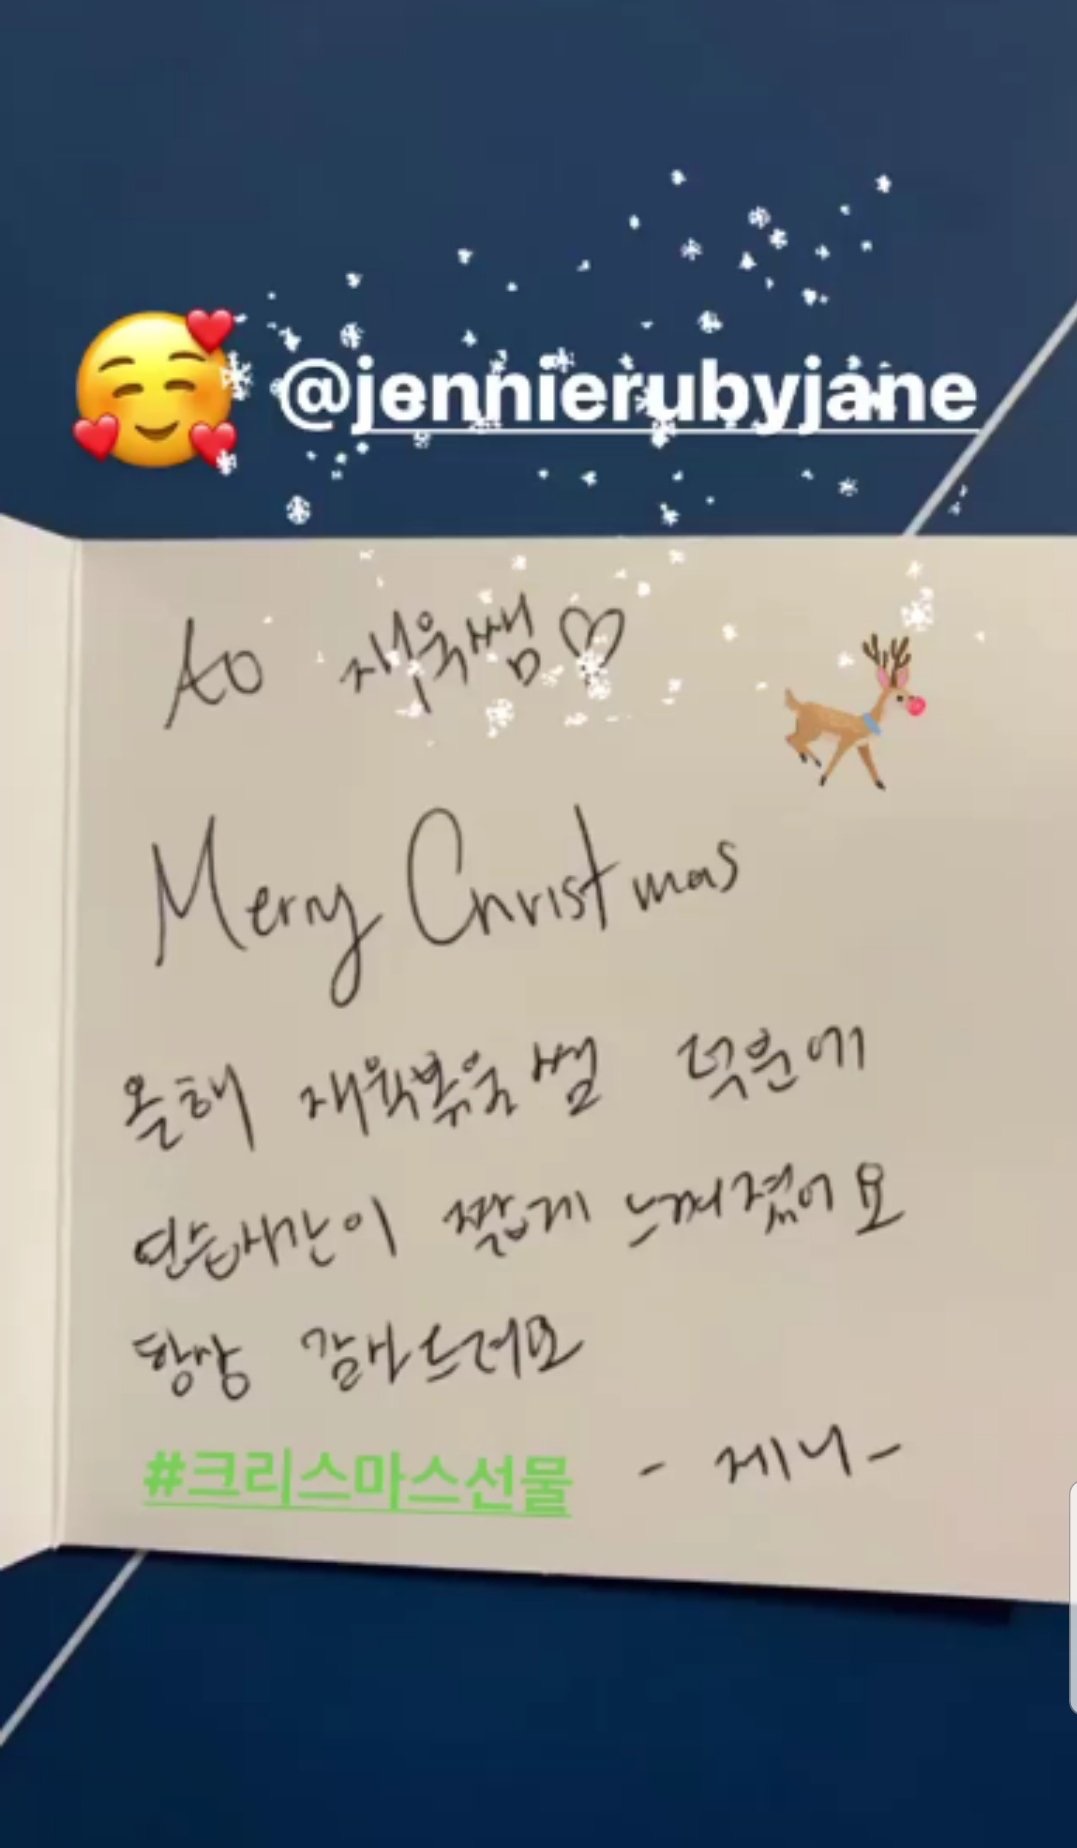 @jennierubyjane
to 재욱쌤♡
Merry Christmas
올해 재욱볶음쌤 덕분에
연습시간이 짧게 느껴졌어요
항상 감사드려요
#크리스마스선물 - 제니 -